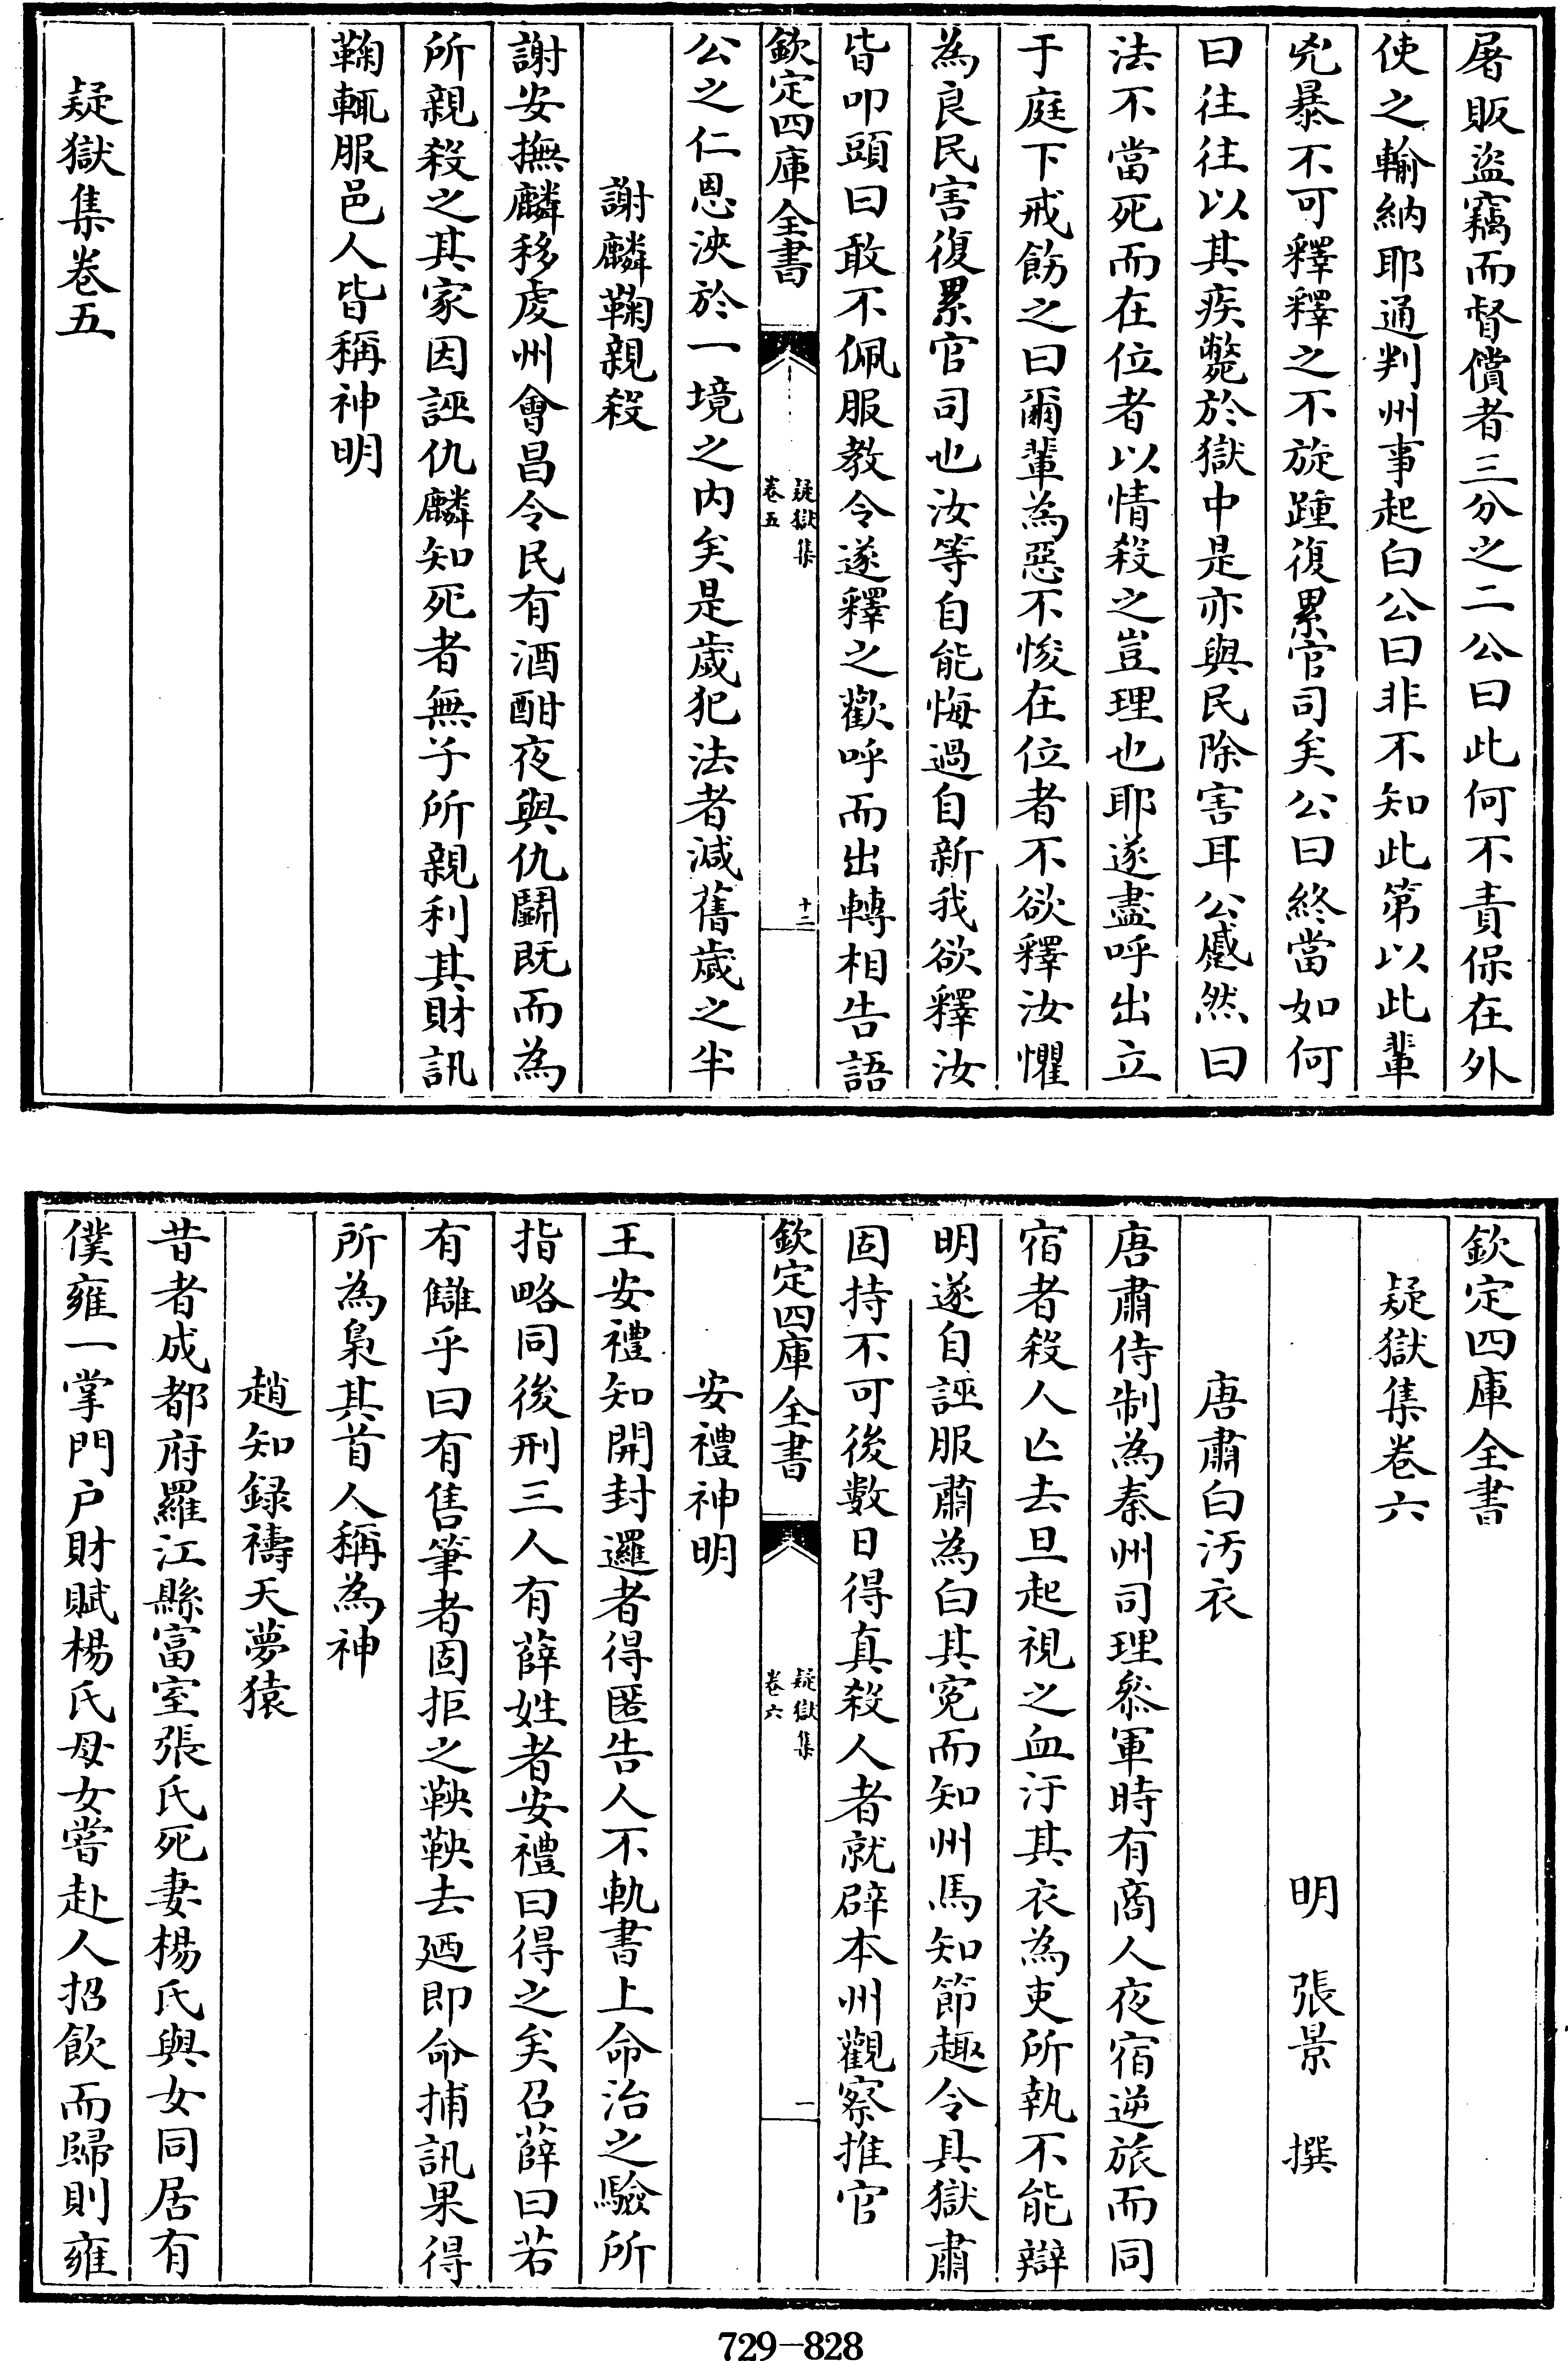 屠販盜竊而督償者三分之二公曰此何不責保在外
使之輸納耶通判州事起白公曰非不知此第以此輩
兇暴不可釋釋之不旋踵復累官司矣公曰終當如何
曰往往以其疾斃於獄中是亦與民除害耳公蹙然曰
法不當死而在位者以情殺之豈理也耶遂盡呼出立
于庭下戒飭之曰爾輩為惡不悛在位者不欲釋汝懼
為良民害復累官司也汝等自能悔過自新我欲釋汝
皆叩頭曰敢不佩服教令遂釋之歡呼而出轉相告語
欽定四庫全書
疑獄集
卷五
十二
公之仁恩浹於一境之内矣是歲犯法者減舊歲之半
謝麟鞫親殺
謝安撫麟移䖍州會昌令民有酒酣夜與仇鬭既而為
所親殺之其家因誣仇麟知死者無子所親利其財訊
鞫輒服邑人皆稱神明
疑獄集卷五
欽定四庫全書
疑獄集卷六
明 張景 撰
唐肅白汚衣
唐肅侍制為秦州司理叅軍時有商人夜宿逆旅而同
宿者殺人亾去旦起視之血汙其衣為吏所執不能辯
明遂自誣服肅為白其寃而知州馬知節趣令具獄肅
固持不可後數日得真殺人者就辟本州觀察推官
欽定四庫全書
疑獄集
卷六
一
安禮神明
王安禮知開封邏者得匿告人不軌書上命治之驗所
指略同後刑三人有薛姓者安禮曰得之矣召薛曰若
有讎乎曰有售筆者固拒之鞅鞅去廼即命捕訊果得
所為梟其首人稱為神
趙知録禱天夢猿
昔者成都府羅江縣富室張氏死妻楊氏與女同居有
僕雍一掌門户財賦楊氏母女嘗赴人招飲而歸則雍
729-828